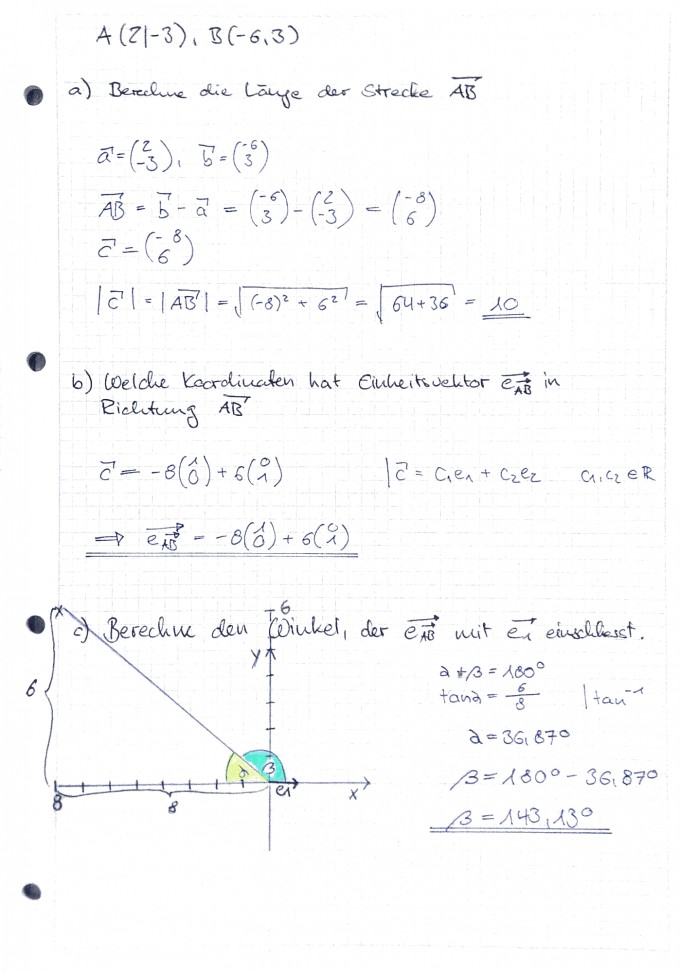 A(2|-3), B(-6,3)
a) Berechne die Länge der Strecke AB
a⃗ = (2 -3), b⃗ = (-6 3)
AB⃗ = b⃗ - a⃗ = (-6 3) - (2 -3) = (-8 6)
c⃗ = (-8 6)
|c⃗| = |AB⃗| = √((-8)² + 6²) = √(64+36) = 10
b) Welche Koordinaten hat Einheitsvektor e⃗_AB⃗ in
Richtung AB⃗
c⃗ = -8(1 0) + 6(0 1) | c⃗ = c₁e₁ + c₂e₂ c₁,c₂ ∈ ℝ
⇒ e⃗_AB⃗ = -8(1 0) + 6(0 1)
c) Berechne den Winkel, der e⃗_AB⃗ mit e⃗₁ einschliesst.
6
x
6
y
α
β
e₁
x
8
8
α+β = 180°
tanα = 6/8 | tan⁻¹
α = 36,87°
β = 180° - 36,87°
β = 143,13°